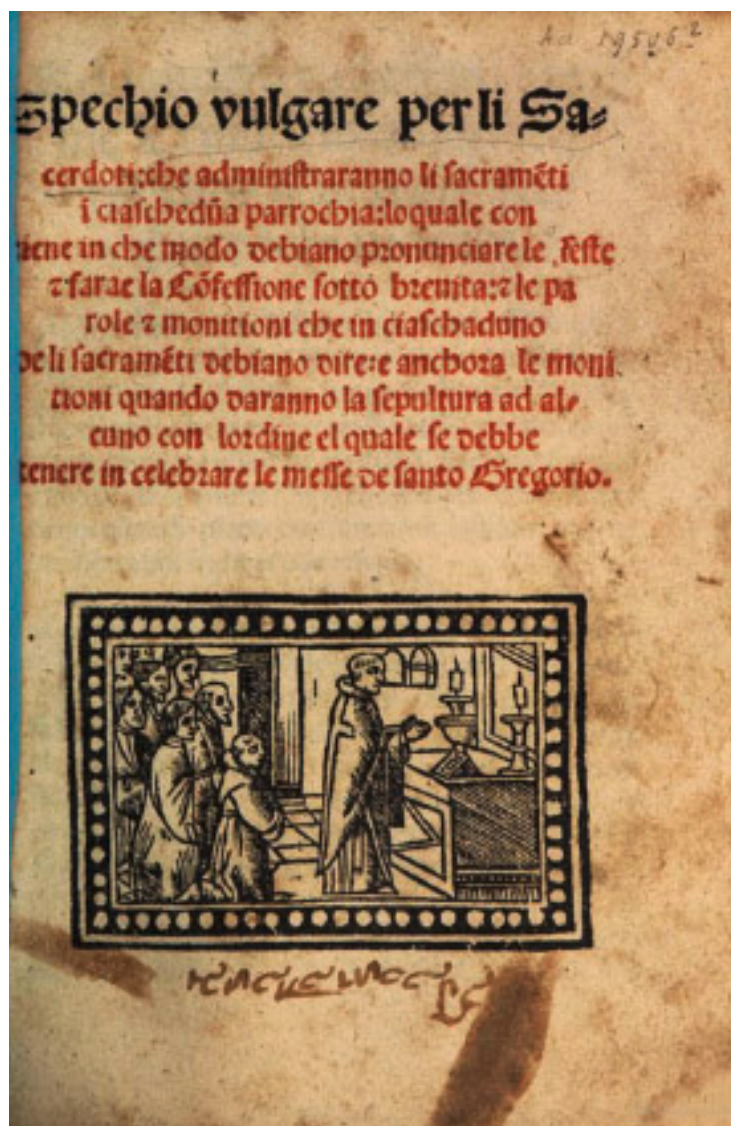 Ad 19506²
Spechio vulgare per li Sa⸗
cerdoti:che administraranno li sacramẽti
ĩ ciaschedũa parrochia:loquale con
tiene in che modo debiano pronunciare le feste
⁊ farae la Cõfessione sotto breuita:⁊ le pa
role ⁊ monitioni che in ciaschaduno
de li sacramẽti debiano dire:e anchora le moni
tioni quando daranno la sepultura ad al⸗
cuno con lordine el quale se debbe
tenere in celebrare le messe de santo Gregorio.